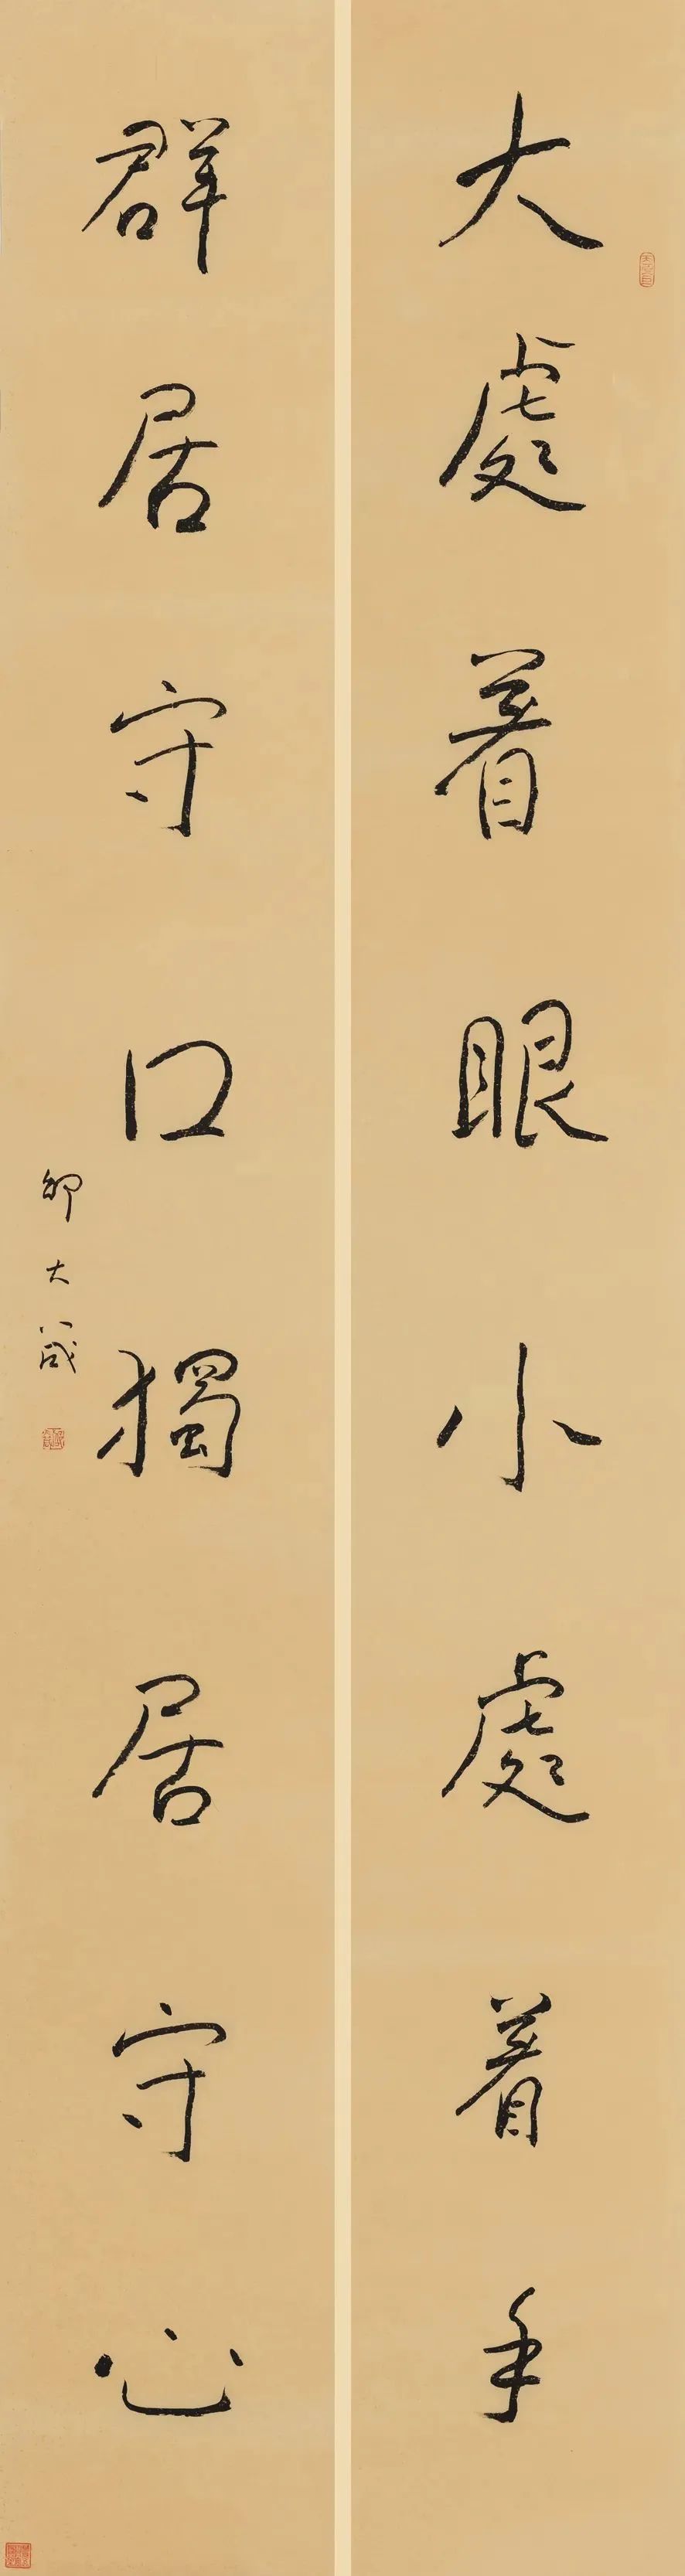 大處着眼小處着手
群居守口獨居守心
鄧大箴